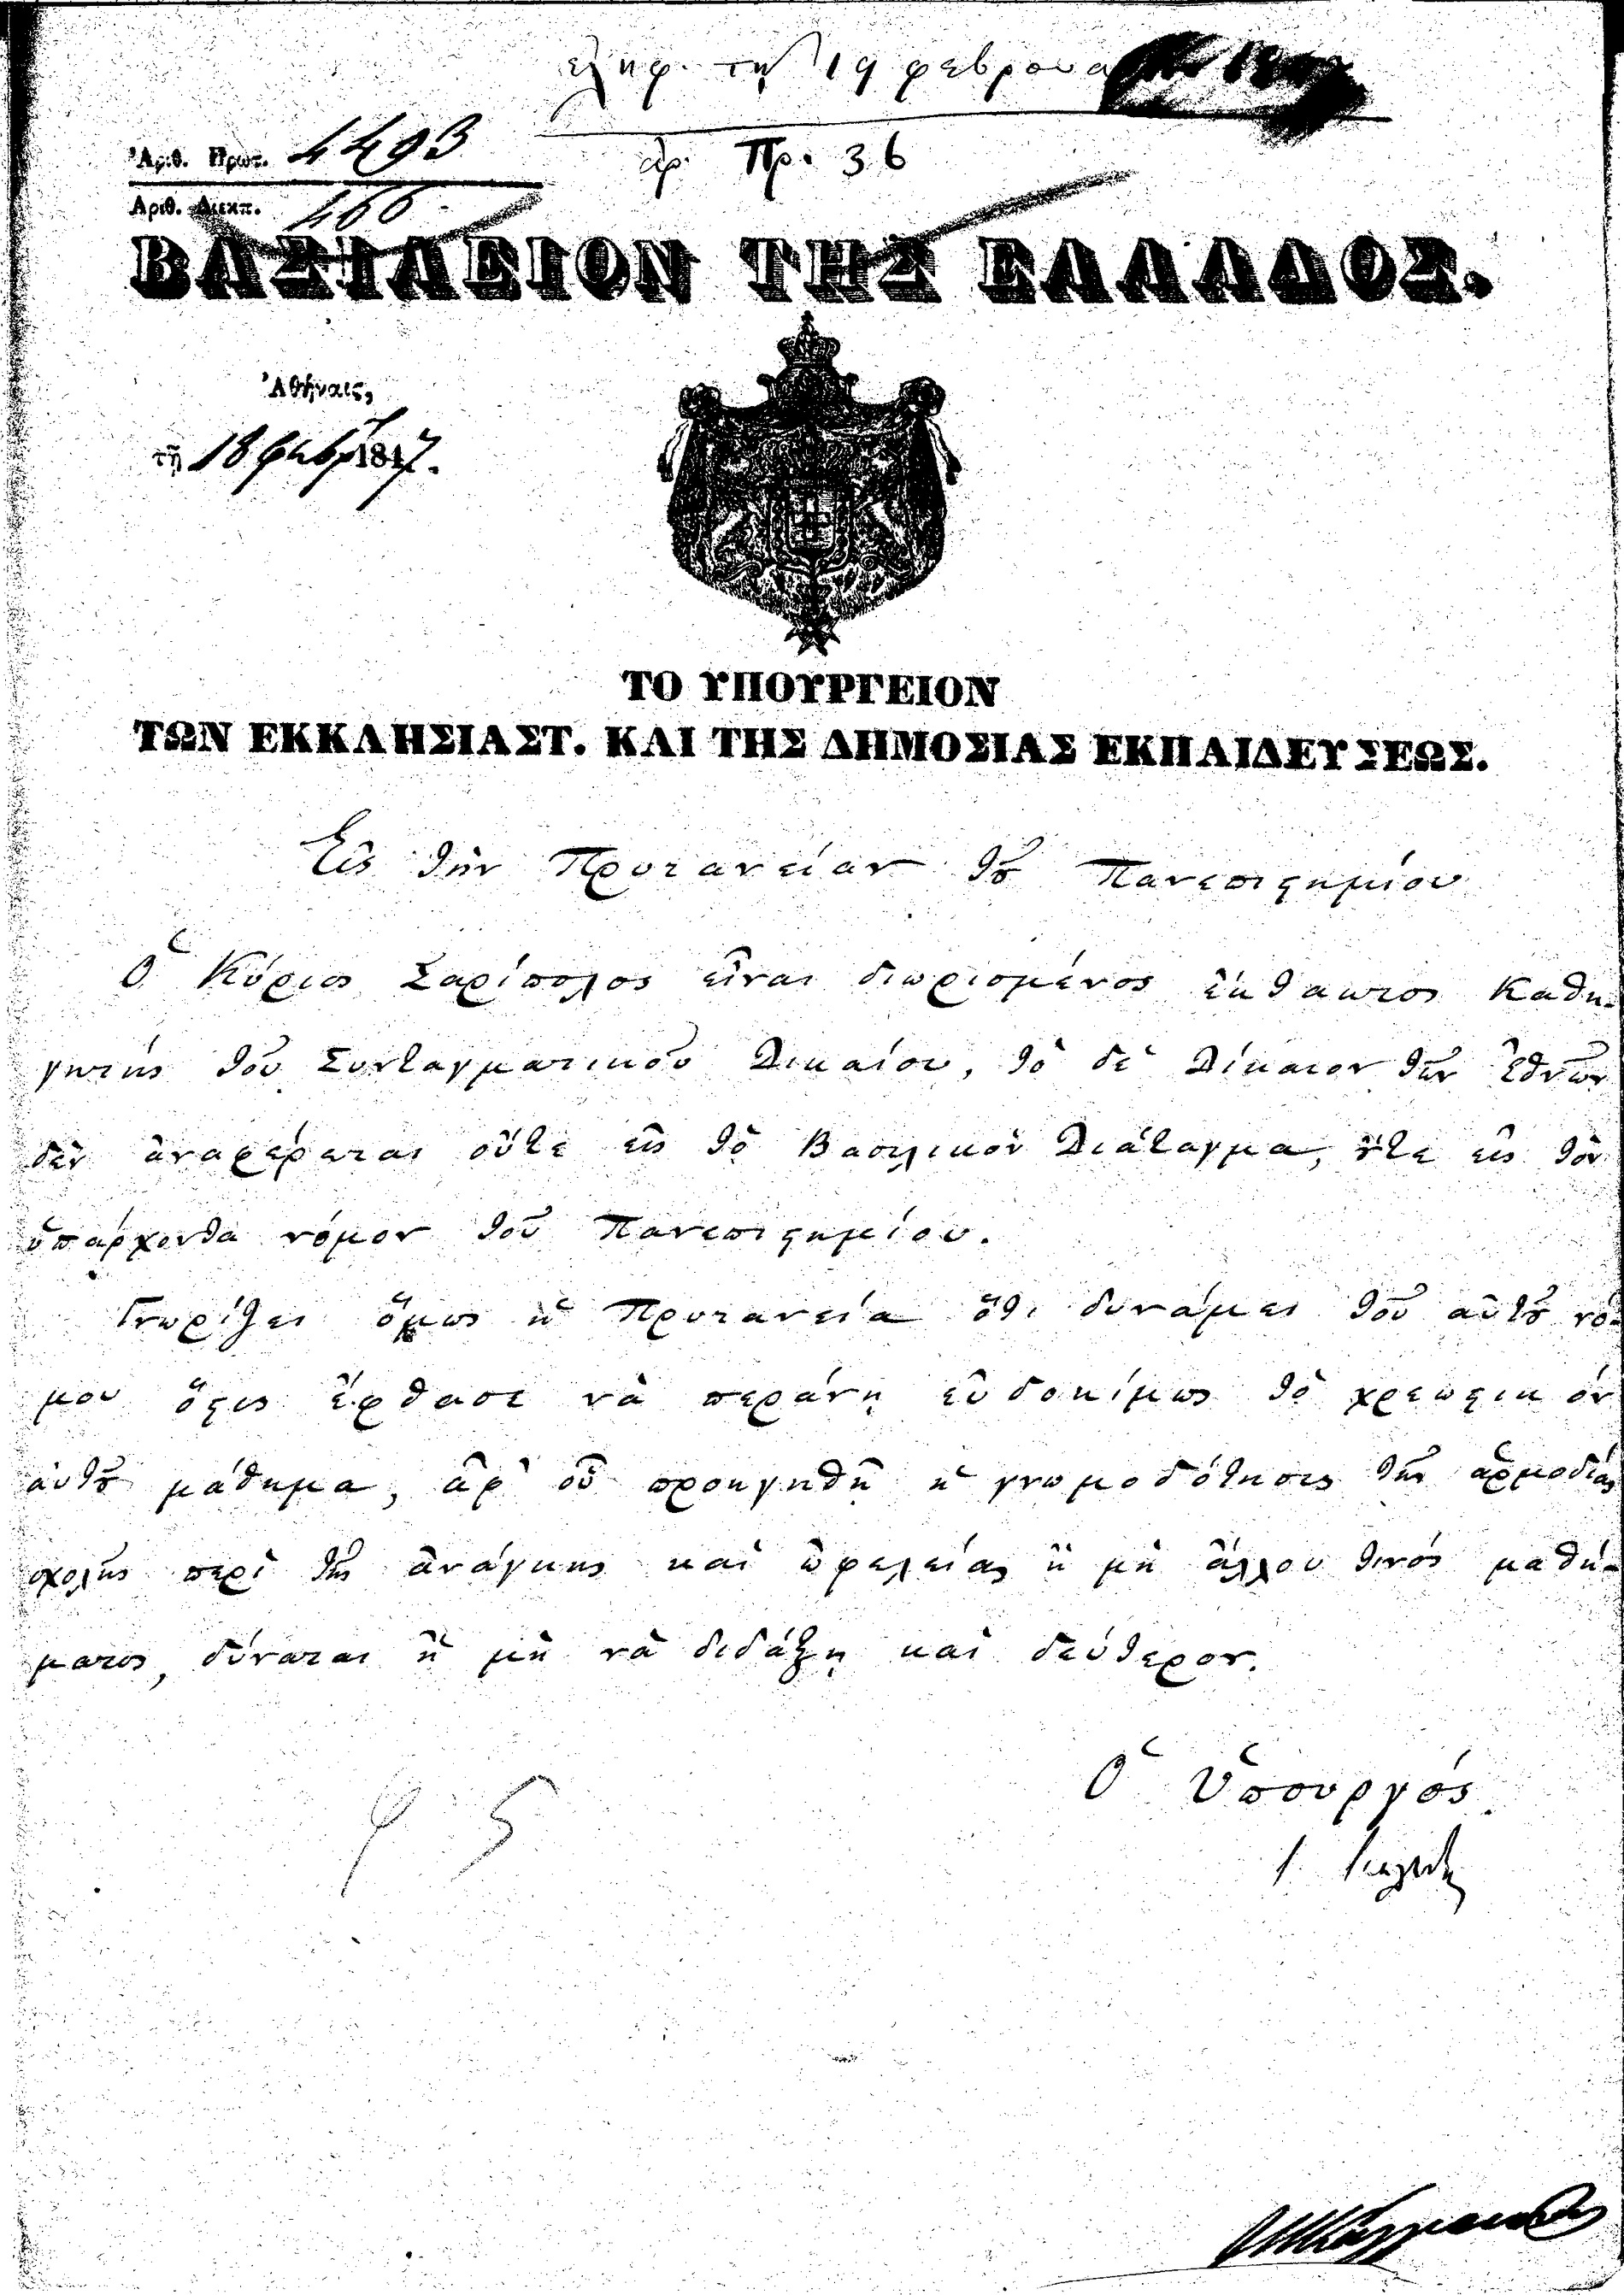 ἐλήφ. τῇ 19 φεβρουα
ἀρ. Πρ. 36
Ἀριθ. Πρωτ. 4493
Ἀριθ. Διεκπ. 466
ΒΑΣΙΛΕΙΟΝ ΤΗΣ ΕΛΛΑΔΟΣ.
Ἀθήναις,
τῇ 18 φεβρ 1847.
ΤΟ ΥΠΟΥΡΓΕΙΟΝ
ΤΩΝ ΕΚΚΛΗΣΙΑΣΤ. ΚΑΙ ΤΗΣ ΔΗΜΟΣΙΑΣ ΕΚΠΑΙΔΕΥΣΕΩΣ.
Εἰς τὴν Πρυτανείαν τȣ͂ Πανεπιϛημίου
Ὁ Κύριος Σαρίπολος εἶναι διωρισμένος ἔκτακτος Καθη-
γητὴς τοῦ Συνταγματικοῦ Δικαίου, τὸ δὲ Δίκαιον τῶν Ἐθνῶν
δὲν ἀναφέρεται οὔτε εἰς τὸ Βασιλικὸν Διάταγμα, ȣ̓́τε εἰς τὸν
ὑπάρχοντα νόμον τοῦ Πανεπιϛημίου.
Γνωρίζει ὅμως ἡ Πρυτανεία ὅτι δυνάμει τοῦ αὐτȣ͂ νό-
μου ὅϛις ἔφθασε νὰ περάνῃ εὐδοκίμως τὸ χρεωϛικόν
αὐτȣ͂ μάθημα, ἀφ' οὗ προηγηθῇ ἡ γνωμοδότησις τῆς ἁρμοδίας
σχολῆς περὶ τῆς ἀνάγκης καὶ ὠφελείας ἢ μὴ ἄλλου τινός μαθή-
ματος, δύναται ἢ μὴ νὰ διδάξῃ καὶ δεύτερον.
Ὁ Ὑπουργός